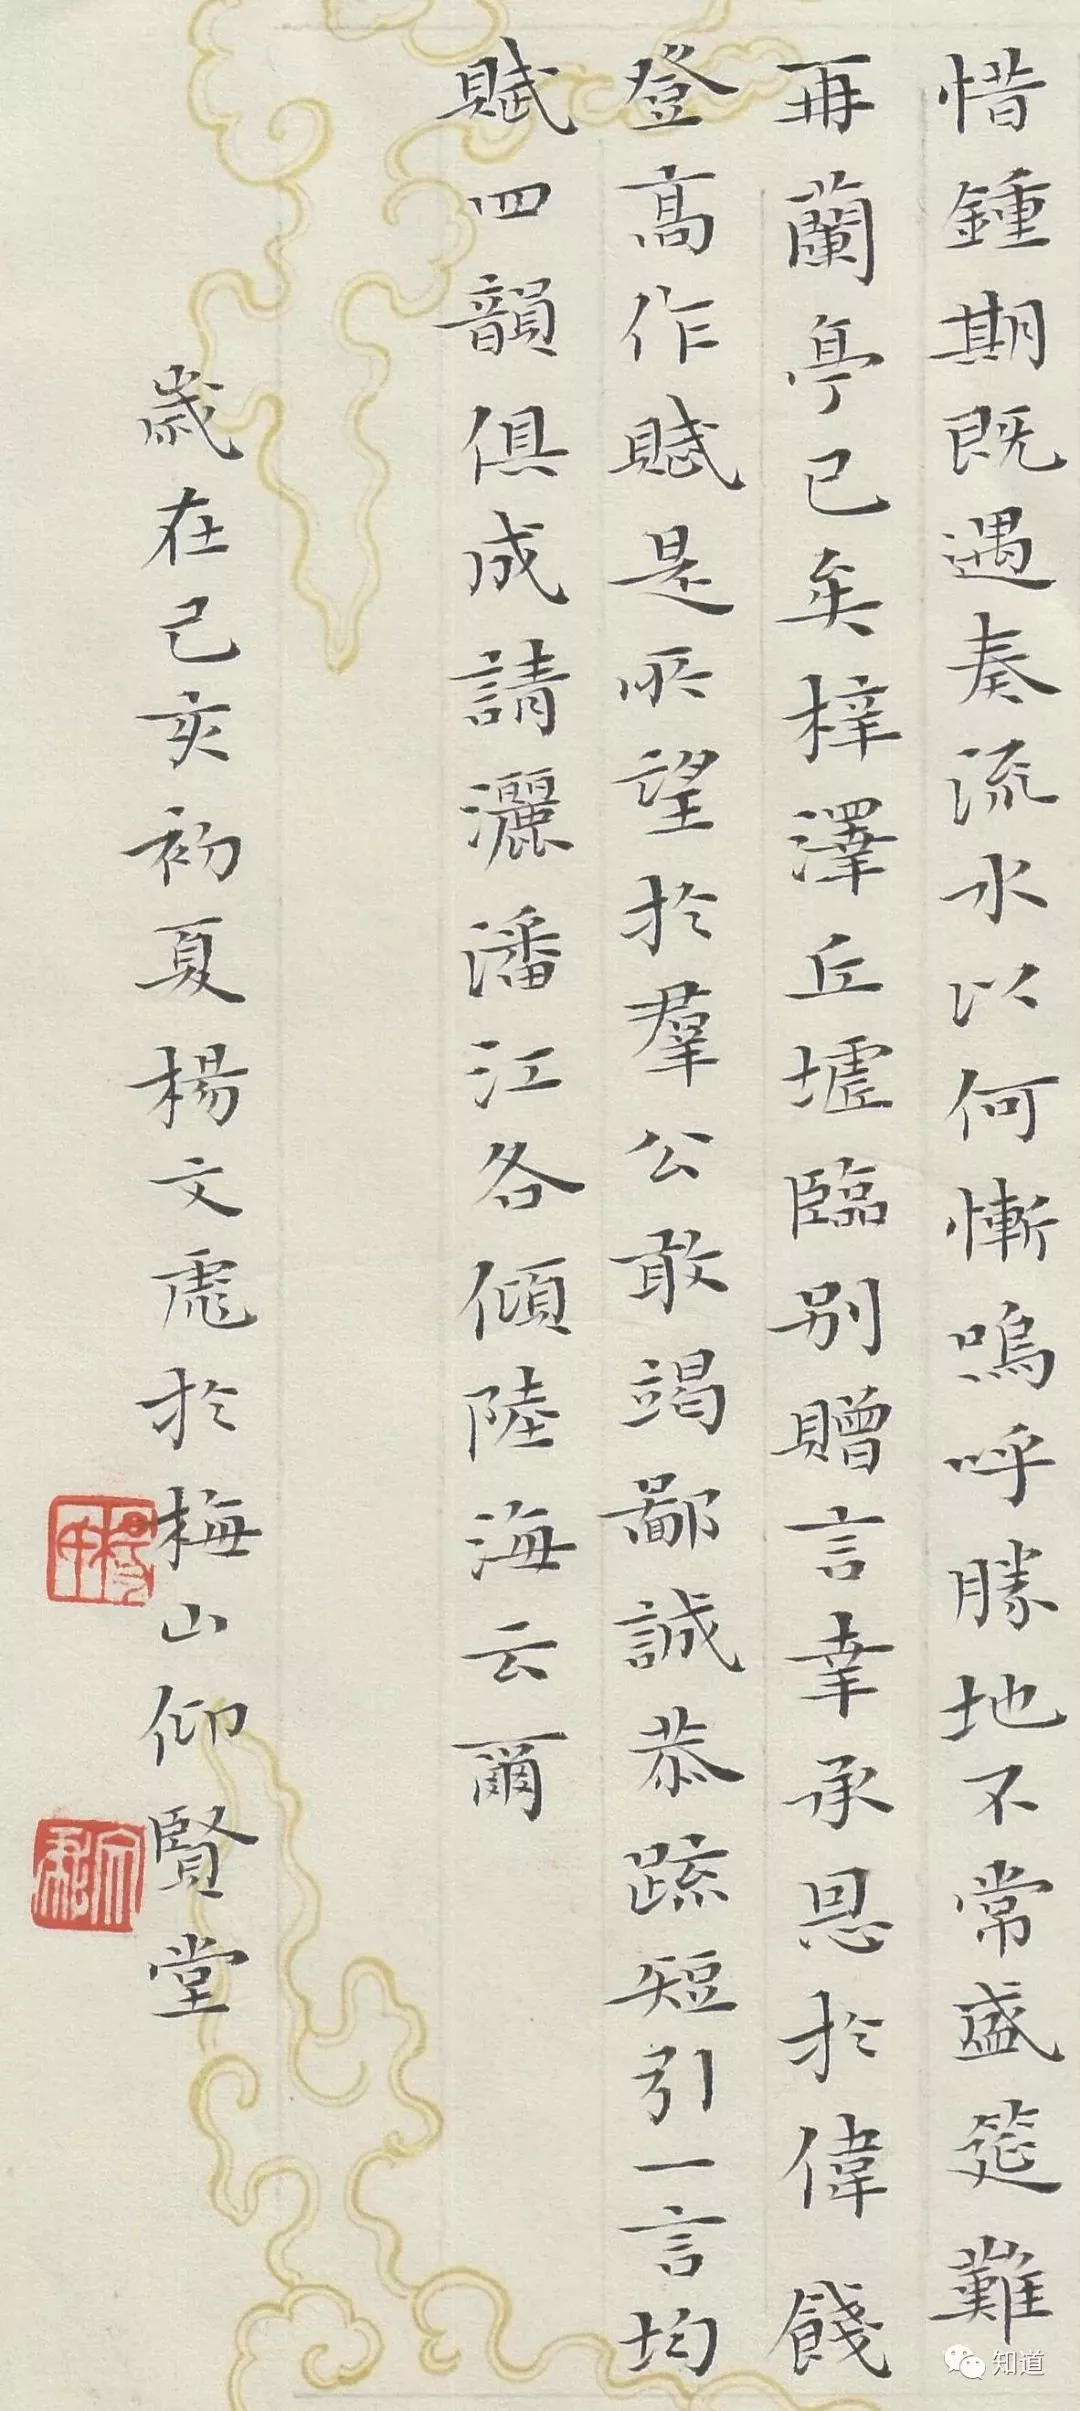 惜鍾期既遇奏流水以何慚嗚呼勝地不常盛筵難
再蘭亭已矣梓澤丘墟臨別贈言幸承恩於偉餞
登高作賦是所望於羣公敢竭鄙誠恭疏短引一言均
賦四韻俱成請灑潘江各傾陸海云爾
歲在己亥初夏楊文虎於梅山仰賢堂
知道